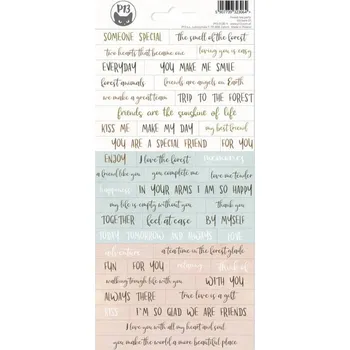 P13
SOMEONE SPECIAL the smell of the forest
two hearts that became one loving you is easy
EVERYDAY YOU MAKE ME SMILE
forest animals friends are angels on Earth
we make a great team TRIP TO THE FOREST
friends are the sunshine of life
KISS ME MAKE MY DAY my best friend
YOU ARE A SPECIAL FRIEND FOR YOU
ENJOY I love the forest memories
a friend like you you complete me love me tender
happiness IN YOUR ARMS I AM SO HAPPY
my life is empty without you thank you
TOGETHER feel at ease BY MYSELF
TODAY TOMORROW AND ALWAYS LOVE
adventure a tea time in the forest glade
FUN FOR YOU
walking trough life with you WITH YOU
ALWAYS THERE true love is a gift
KISS I'M SO GLAD WE ARE FRIENDS
I love you with all my heart and soul
you make the world a more beautiful place